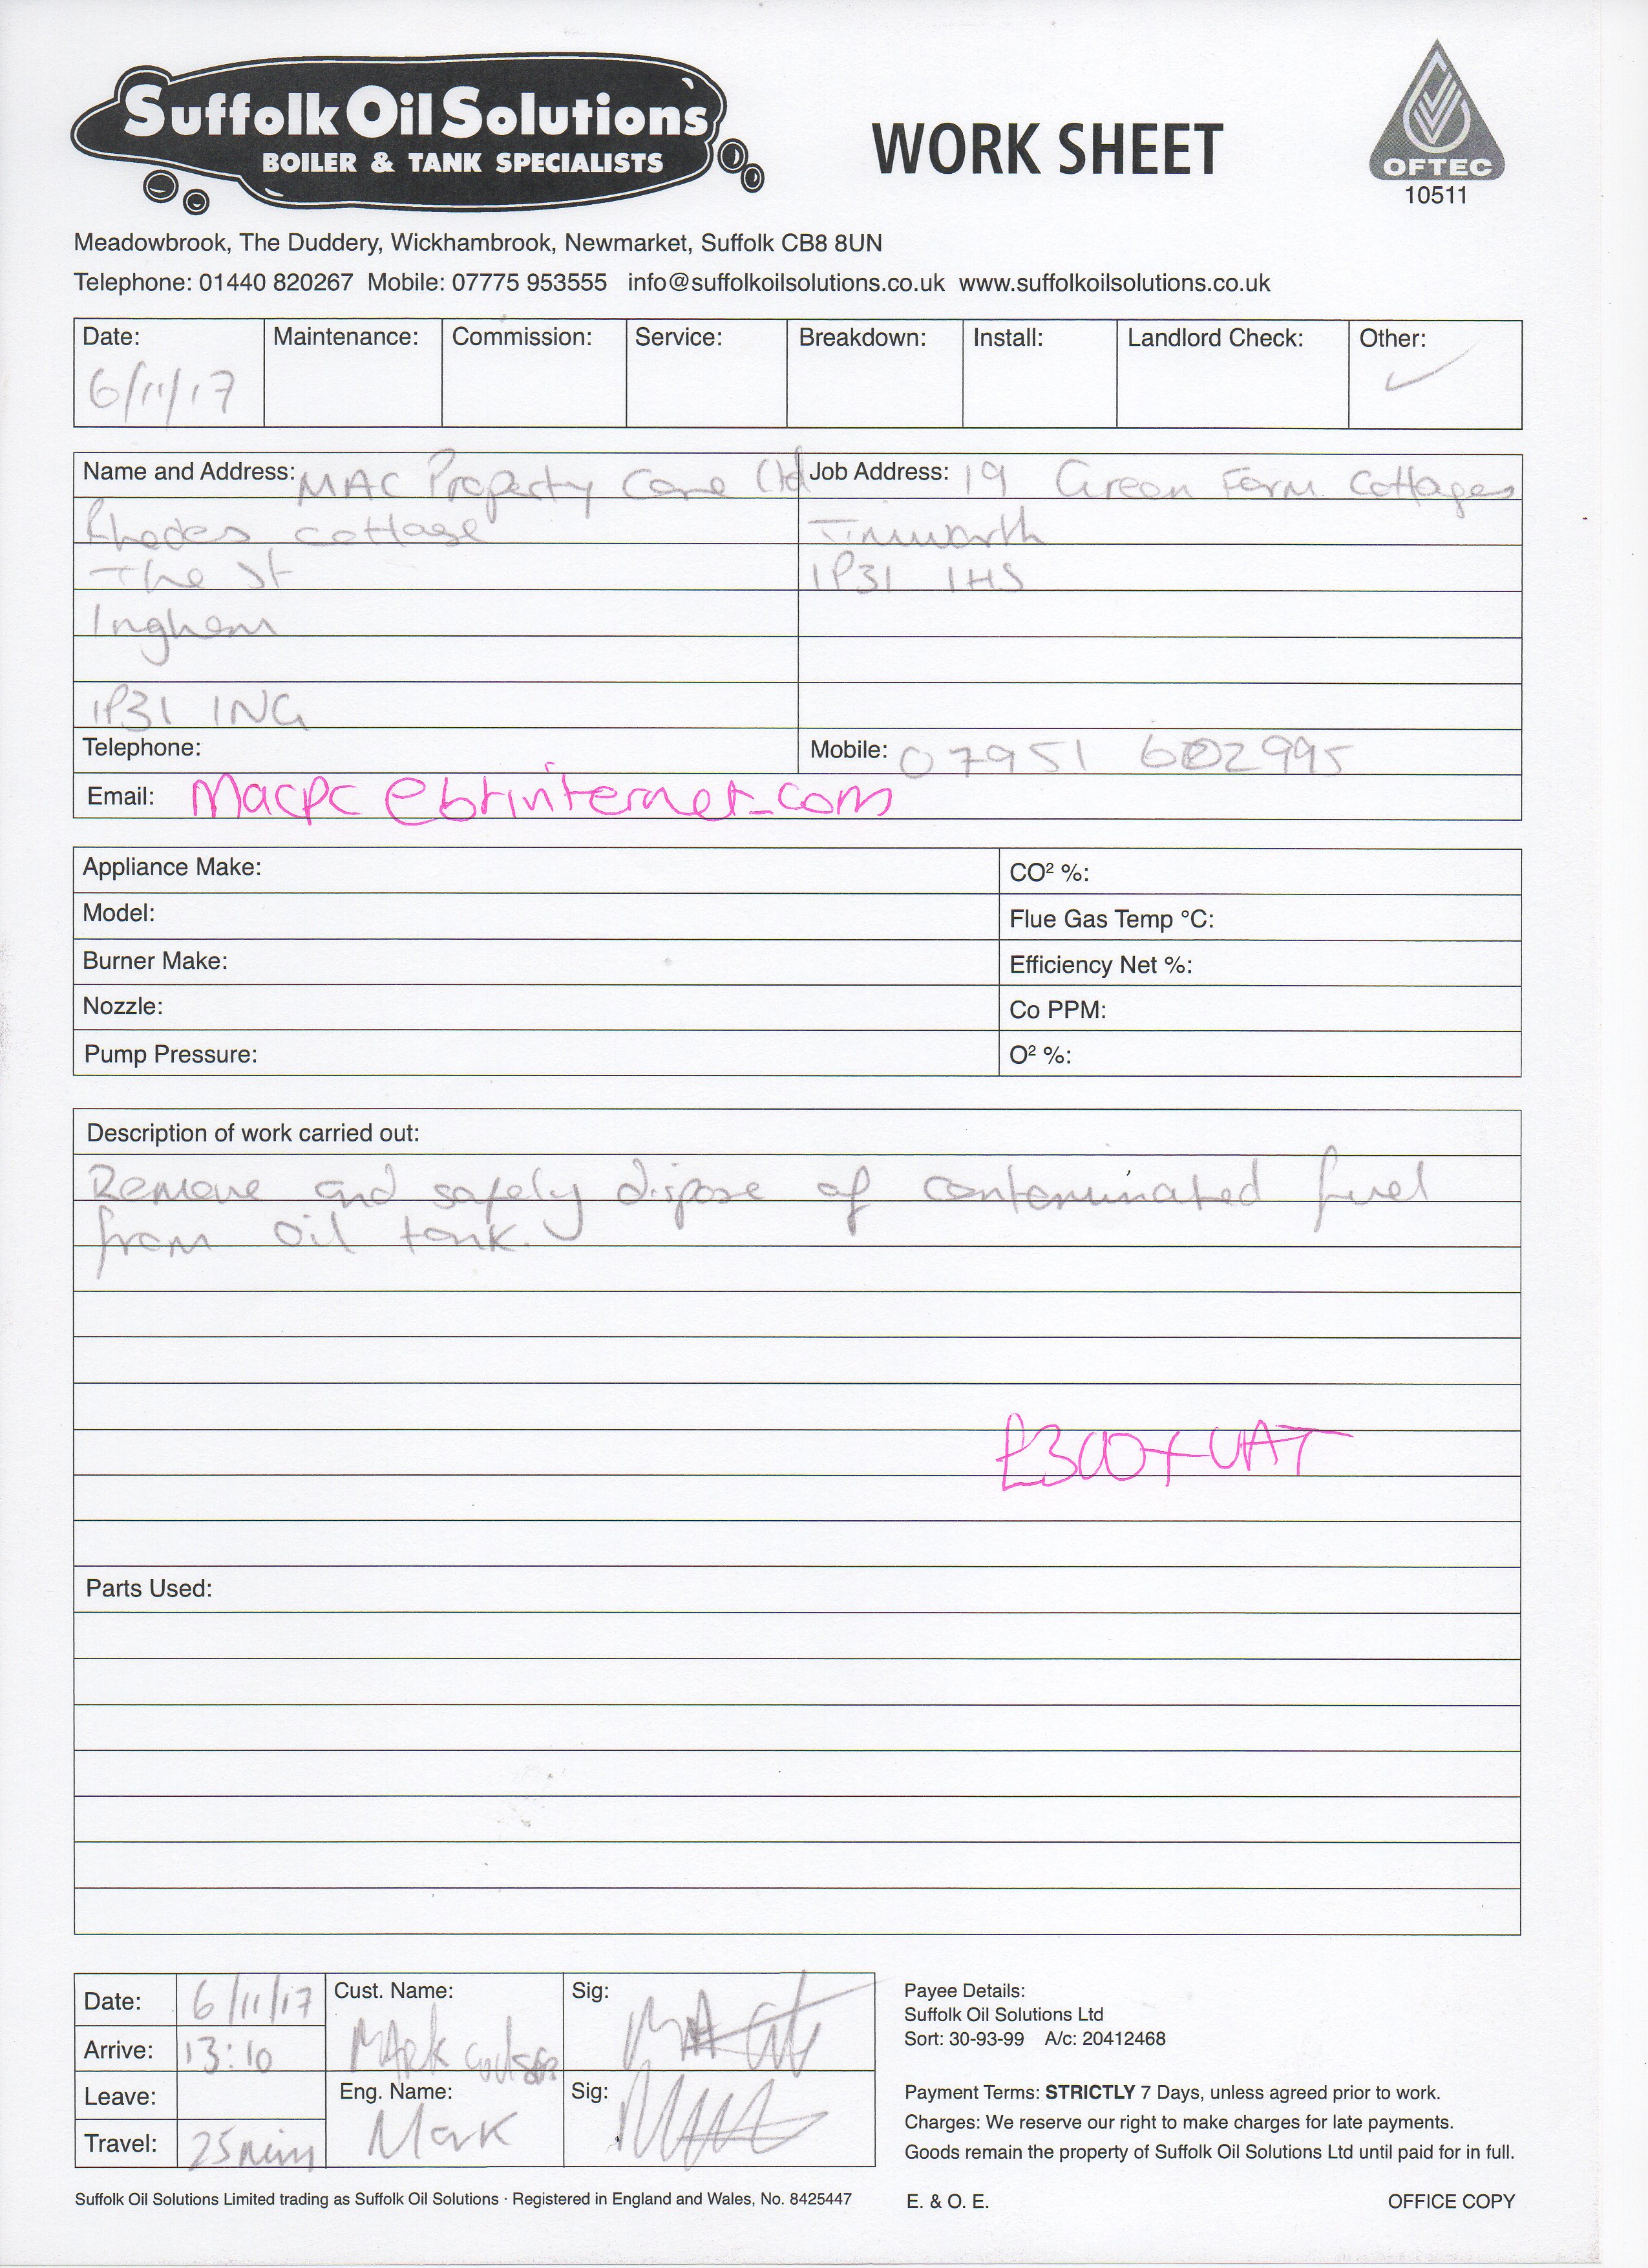 Suffolk Oil Solutions
BOILER & TANK SPECIALISTS
WORK SHEET
OFTEC
10511
Meadowbrook, The Duddery, Wickhambrook, Newmarket, Suffolk CB8 8UN
Telephone: 01440 820267 Mobile: 07775 953555 info@suffolkoilsolutions.co.uk www.suffolkoilsolutions.co.uk
Date: Maintenance: Commission: Service: Breakdown: Install: Landlord Check: Other:
6/11/17 ✓
Name and Address: MAC Property Care Ltd
Rhodes cottage
The St
Ingham
IP31 1NG
Job Address: 19 Green Farm Cottages
Timworth
IP31 1HS
Telephone:
Mobile: 07951 602995
Email: Macpc@btinternet.com
Appliance Make:
Model:
Burner Make:
Nozzle:
Pump Pressure:
CO² %:
Flue Gas Temp °C:
Efficiency Net %:
Co PPM:
O² %:
Description of work carried out:
Remove and safely dispose of contaminated fuel
from oil tank.
£300+VAT
Parts Used:
Date: 6/11/17
Arrive: 13:10
Leave:
Travel: 25min
Cust. Name:
Mark
Sig:
Eng. Name:
Mark
Sig:
Payee Details:
Suffolk Oil Solutions Ltd
Sort: 30-93-99 A/c: 20412468
Payment Terms: STRICTLY 7 Days, unless agreed prior to work.
Charges: We reserve our right to make charges for late payments.
Goods remain the property of Suffolk Oil Solutions Ltd until paid for in full.
Suffolk Oil Solutions Limited trading as Suffolk Oil Solutions · Registered in England and Wales, No. 8425447
E. & O. E.
OFFICE COPY